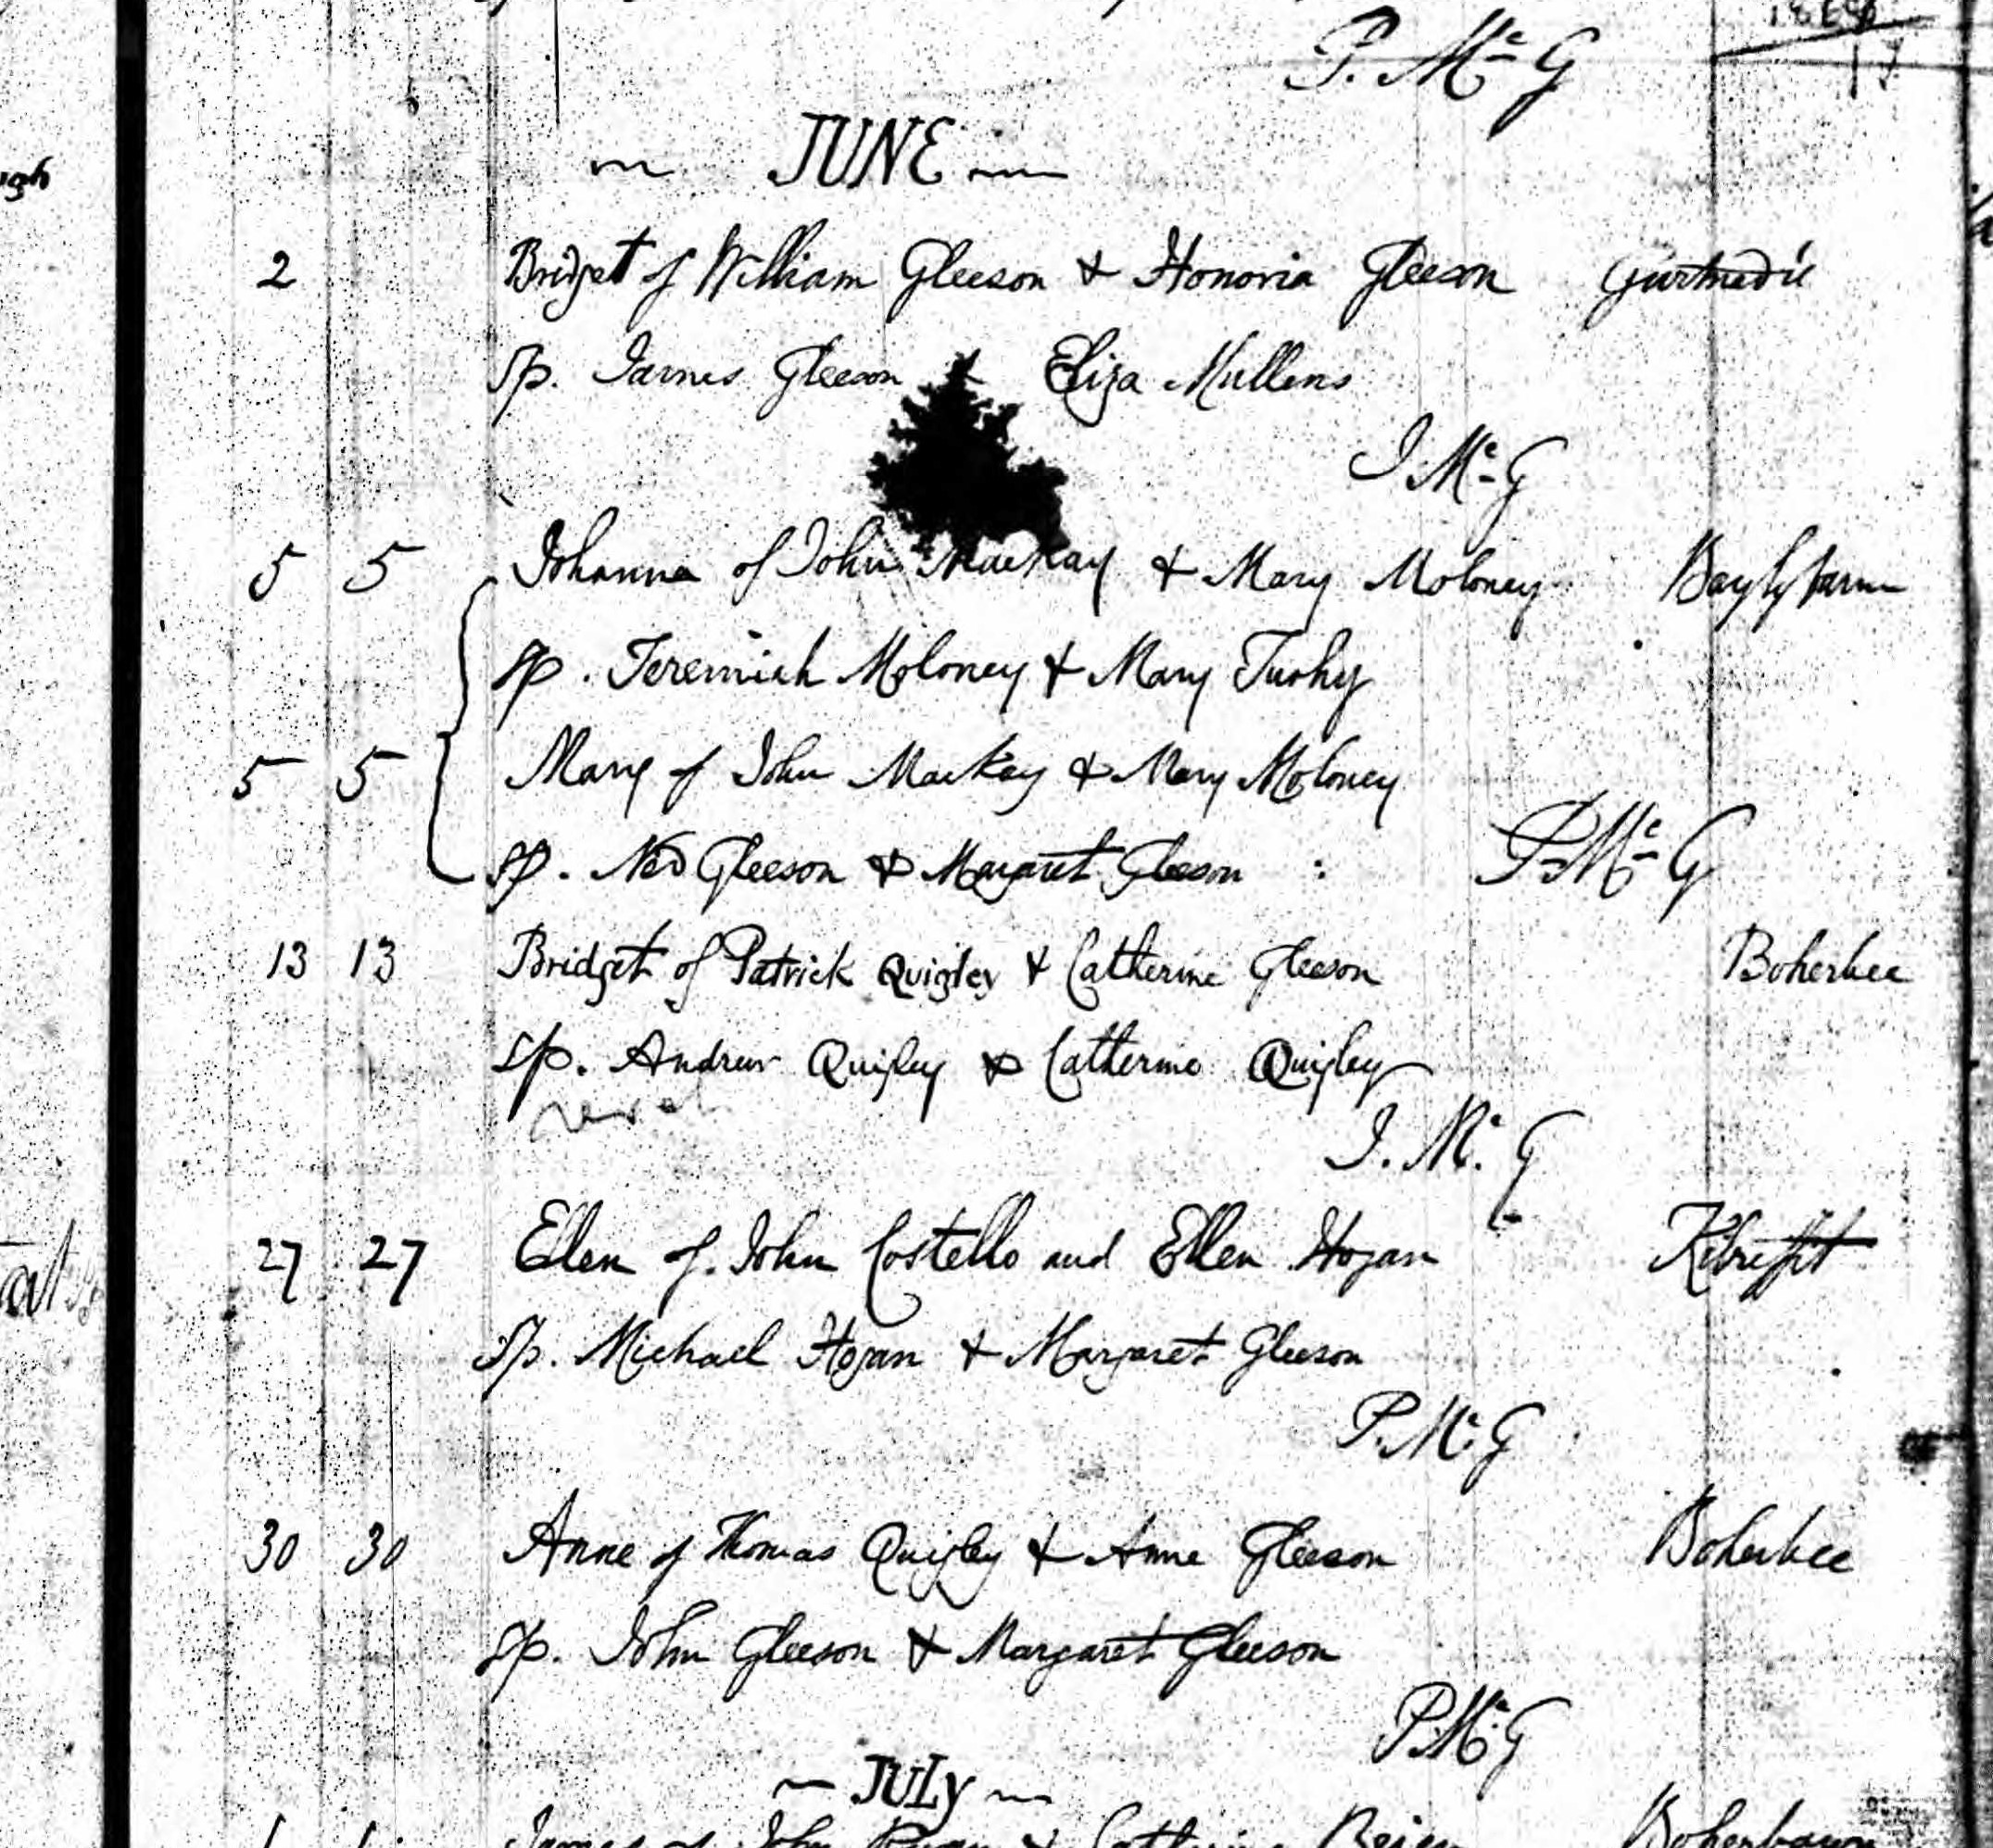 P. Mc G
JUNE
2 Bridget of William Gleeson & Honoria Gleeson
Sp. James Gleeson Eliza Mullens
J. Mc G
5 5 Johanna of John Mackay & Mary Moloney Baylyfarm
Sp. Jeremiah Moloney & Mary Tuohy
5 5 Mary of John Mackey & Mary Moloney
Sp. Ned Gleeson & Margaret Gleeson : P. Mc G
13 13 Bridget of Patrick Quigley & Catherine Gleeson Boherbee
Sp. Andrew Quigley & Catherine Quigley
J. Mc. G
27 27 Ellen of John Costello and Ellen Hogan
Sp. Michael Hogan & Margaret Gleeson
P. Mc G
30 30 Anne of Thomas Quigley & Anne Gleeson Boherbee
Sp. John Gleeson & Margaret Gleeson
P. Mc G
JULY
James of John Ryan & Catherine